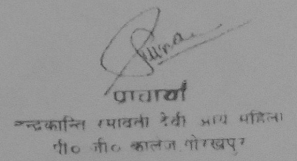 प्राचार्या
चन्द्रकान्ति रमावती देवी आर्य महिला
पी० जी० कालेज गोरखपुर